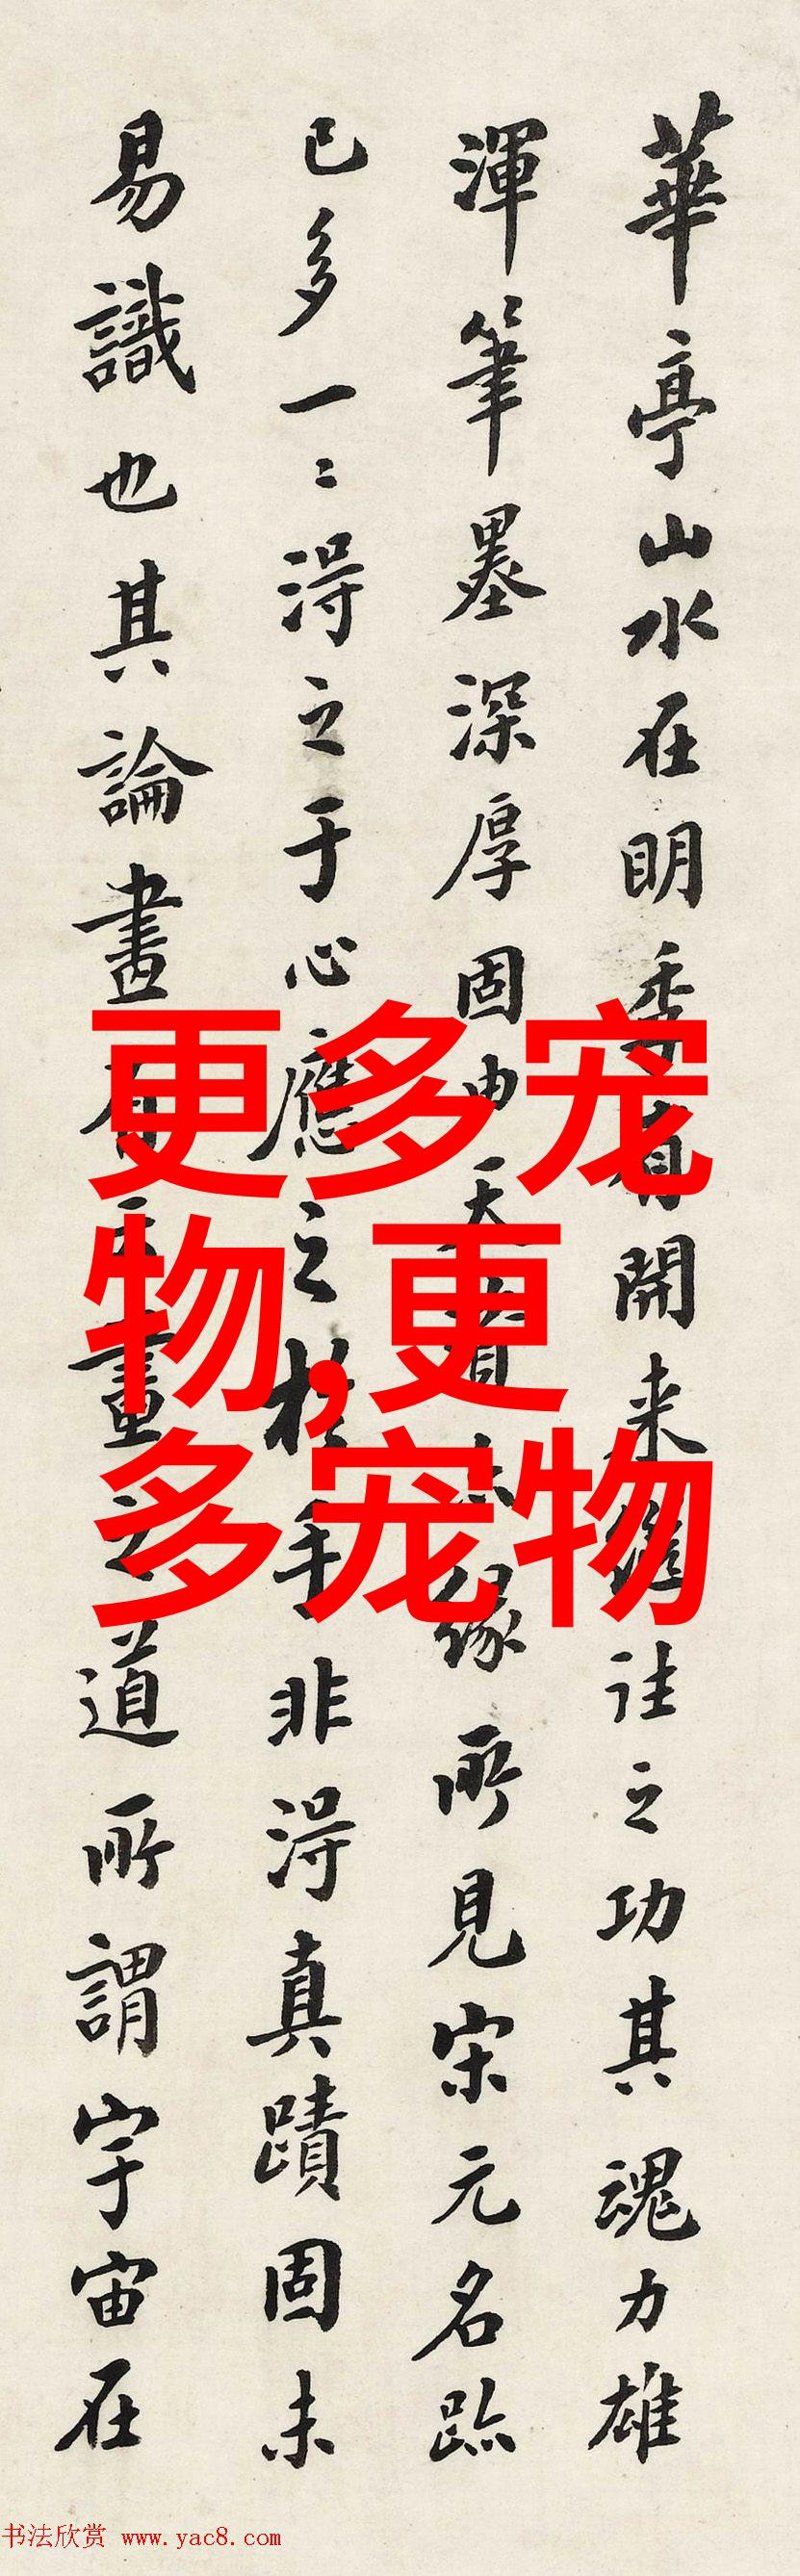 華亭山水在明季有開来繼往之功其魂力雄
渾筆墨深厚固由天資亦緣所見宋元名跡
已多一二得之于心應之於手非得真蹟固未
易識也其論畫有云畫之道所謂宇宙在
更多宠
物,更
多宠物
书法欣赏 www.yac8.com